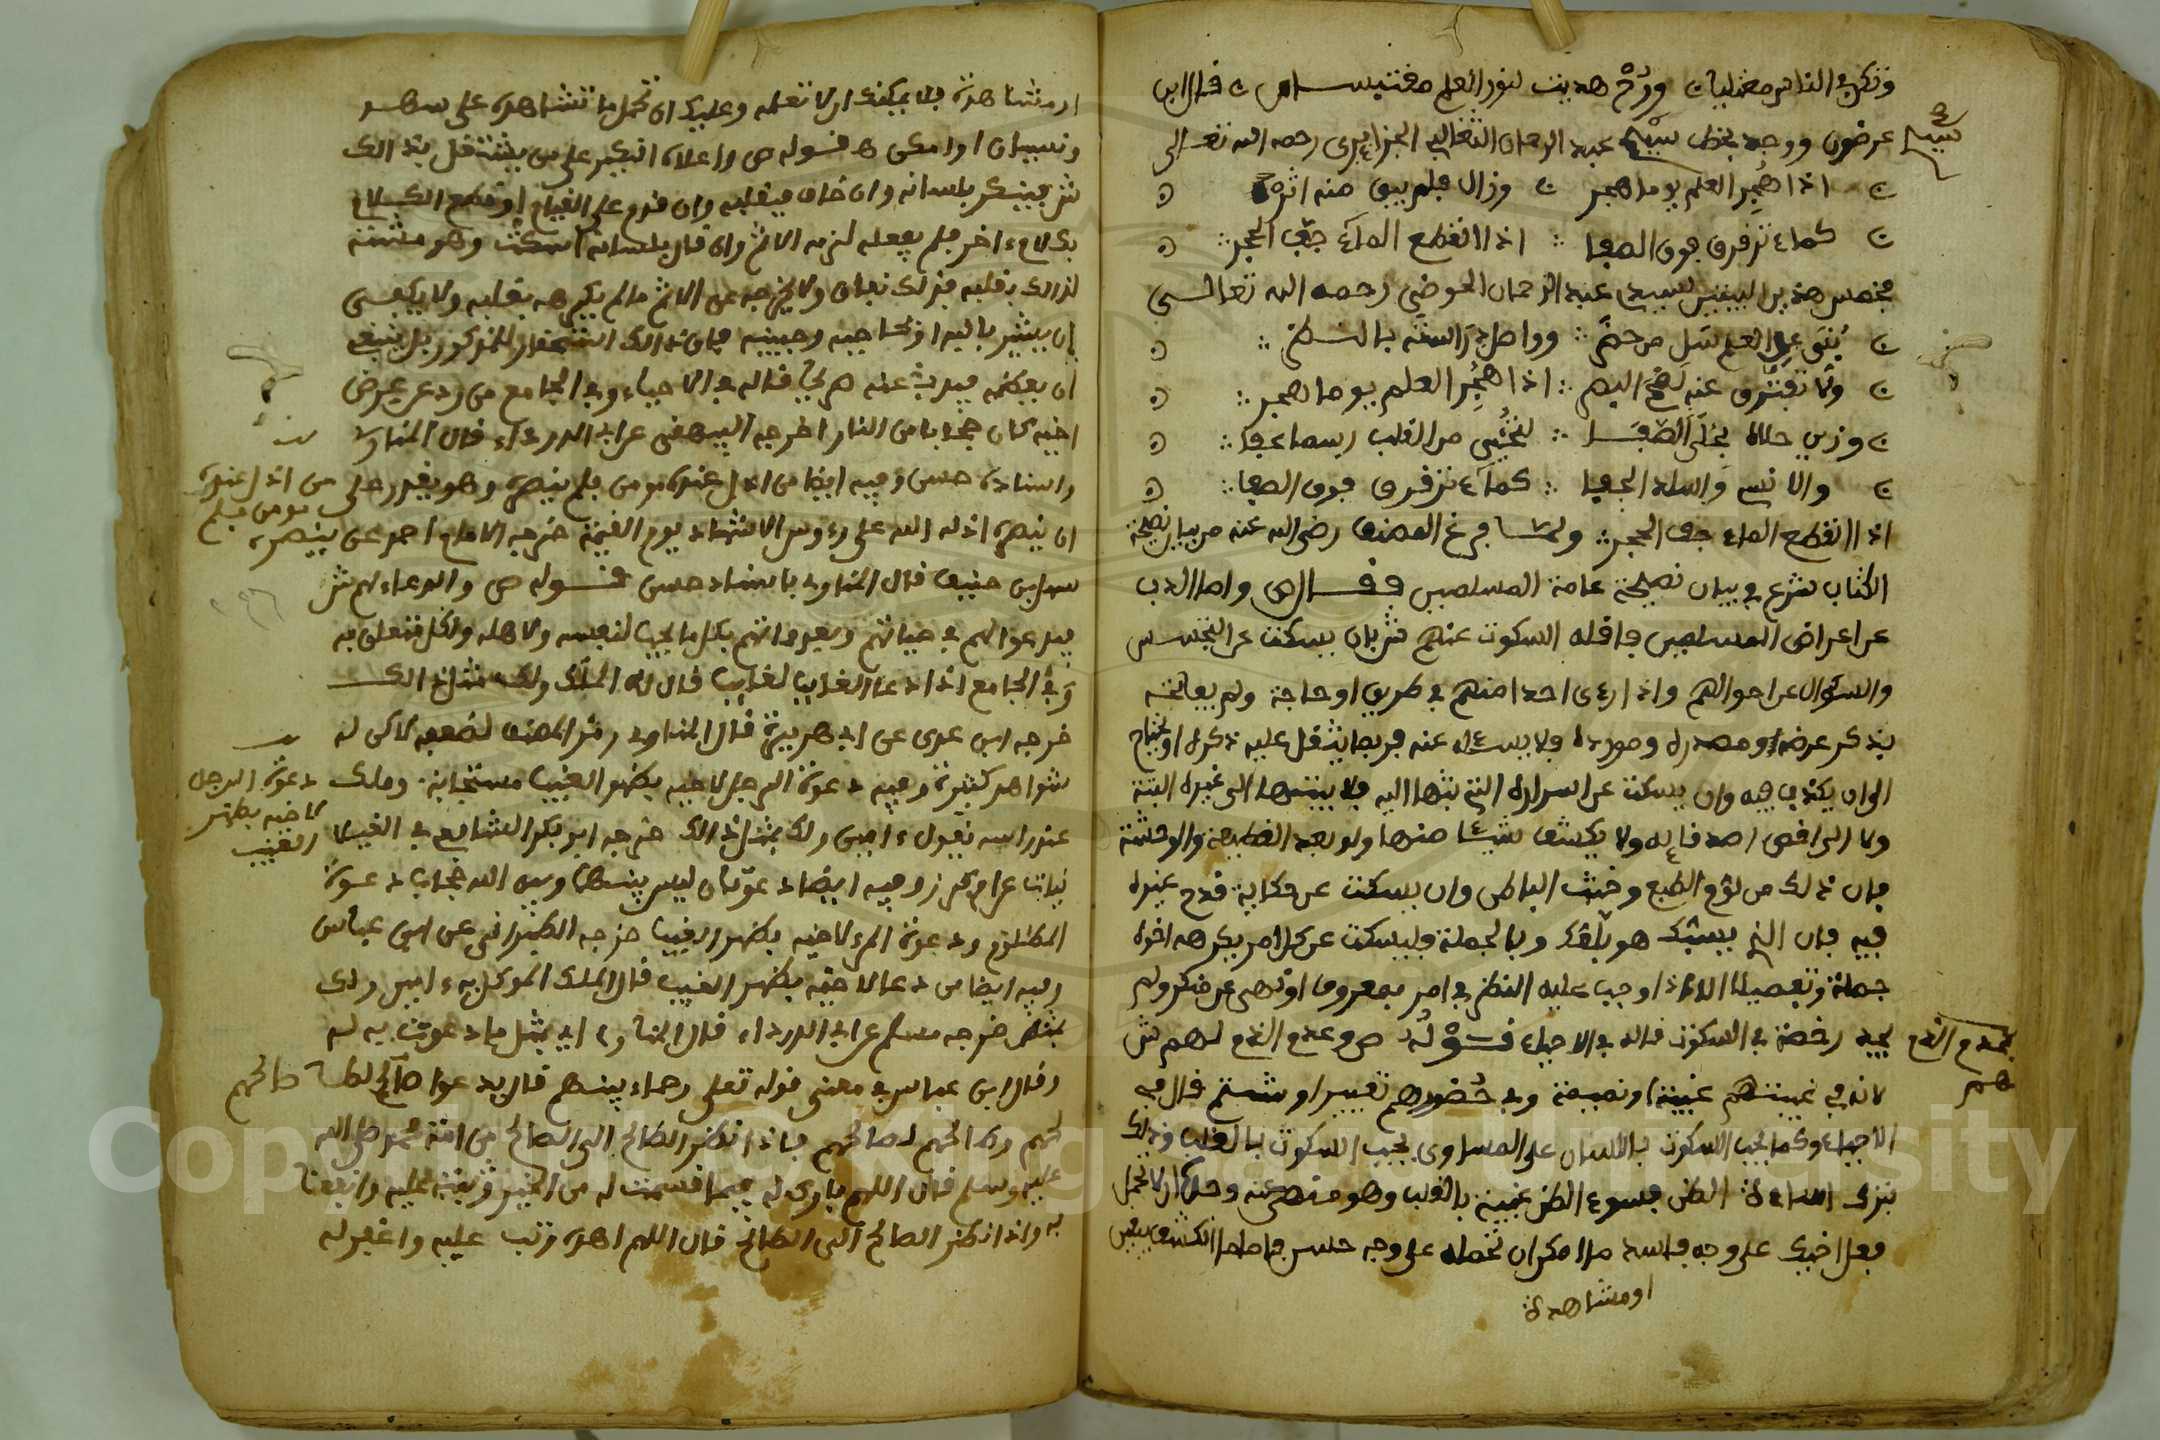 وتكن في الناس مغتليان ورُحْ هديت لنور العلم مقتبسا ص ن قال ابن
عرضون ووجد بخط شيخ عبد الرحمان الثعالبي الجزايري رحمه الله تعالى
شيخ
اذا هُجِر العلم يوما هجر وزال فلم يبق منه اثر
كماء ترقرق فوق الصفا اذا انقطع الماء جف الحجر
فخمس هذين البيتين سيدي عبد الرحمان الحوضي رحمه الله تعالى
على العلم سل من حضر وواصل دراسته بالنظر
ولا تفترق عنه اذا هُجِر العلم يوما هجر
وزين حلاه
والا نسي كماء ترقرق فوق الصفا
اذا انقطع الماء جف الحجر ولما فرغ المصنف رضي الله عنه من بيان نصيحة
الكتاب شرع في بيان نصيحة عامة المسلمين فقال ص واما الذب
عن اعراض المسلمين فاقله السكوت عنهم ش بان يسكت عن التجسس
والسؤال عن احوالهم واذا رءى احدا منهم في طريق او حاجة ولم يفاتحه
بذكر غرضه ومصدره ومورده فلا يسئله عنه فربما يثقل عليه ذكره او يحتاج
الى ان يكذب فيه وان يسكت عن اسراره التي بثها اليه فلا يبثها الى غيره البتة
ولا الى اخص اصدقايه ولا يكشف شيئا منها ولو بعد القطيعة والوحشة
فان ذلك من لؤم الطبع وخبث الباطن وان يسكت عن حكاية قدح غيره
فيه فان الذي يسبك هو بلغك وبالجملة فليسكت عن كل امر يكرهه اخوه
جملة وتفصيلا الا اذا وجب عليه النطق في امر بمعروف او نهي عن منكر ولم
يجد رخصة في السكوت قاله في الاحياء قوله ص وعدم الذم لهم ش
بعدم الذم لهم
لانه في غيبتهم غيبة او نميمة وفي حضورهم تعيير او شتم قال في
الاحياء وكما يجب السكوت باللسان على المساوي يجب السكوت بالقلب وذلك
بترك اساءة الظن فسوء الظن غيبة بالقلب وهو منهي عنه وحده ان لا تحمل
فعل اخيك على وجه فاسد ما امكن ان تحمله على وجه حسن فاما ما انكشف بيقين
او مشاهدة
او مشاهدة فلا يمكنك ان لا تعلمه وعليك ان تحمل ما تشاهده على سهو
ونسيان او امكن قوله ص واعلاه النكير على من يشتغل بذالك
ش فينكر بلسانه وان خاف فبقلبه وان قدر على القيام او قطع الكلام
بكلام اخر فلم يفعله لزمه الاثم وان قال بلسانه اسكت وهو مشته
لذالك بقلبه فذلك نفاق ولا يخرجه من الاثم ما لم يكرهه بقلبه ولا يكفي
ان يشير باليد او بحاجبه وجبينه فان ذالك استحقار للمذكور بل ينبغي
ان يعظمه فيذب عنه صريحا قاله في الاحياء وفي الجامع من رد عن عرض
اخيه كان حجابا من النار اخرجه البيهقي عن ابي الدرداء قال المناوي
واسناده حسن وفيه ايضا من اذل عنده مومن فلم ينصره وهو يقدر على
من اذل عنده مومن فلم ينصره
ان ينصره اذله الله على رءوس الاشهاد يوم القيمة خرجه الامام احمد عن
سهل بن حنيف قال المناوي باسناد حسن قوله ص والدعاء لهم ش
فيدعوا لهم في حياتهم وبعد وفاتهم بكل ما يحب لنفسه ولاهله ولكل متعلق به
وفي الجامع اذا دعا الغايب لغايب قال له الملك ولك مثل ذالك
خرجه ابن عدي عن ابي هريرة قال المناوي رمز المصنف لضعفه لاكن له
شواهد كثيرة وفيه دعوة الرجل لاخيه بظهر الغيب مستجابة وملك
دعوة الرجل لاخيه بظهر الغيب
عند راسه يقول ءامين ولك بمثل ذالك خرجه ابو بكر الشافعي في الغيلا
نيات عن ام كرز وفيه ايضا دعوتان ليس بينهما وبين الله حجاب دعوة
المظلوم ودعوة المرء لاخيه بظهر الغيب خرجه الطبراني عن ابن عباس
وفيه ايضا من دعا لاخيه بظهر الغيب قال الملك الموكل به ءامين ولك
بمثل خرجه مسلم عن ابي الدرداء قال المناوي اي بمثل ما دعوت به له
وقال ابن عباس في معنى قوله تعلى رحماء بينهم قال يدعوا صالحهم لطالحهم
وطالحهم لصالحهم فاذا نظر الطالح الى الصالح من امة محمد صلى الله
عليه وسلم قال اللهم بارك له فيما قسمت له من الخير وثبته عليه وانفعنا
به واذا نظر الصالح الى الطالح قال اللهم اهده وتب عليه واغفر له